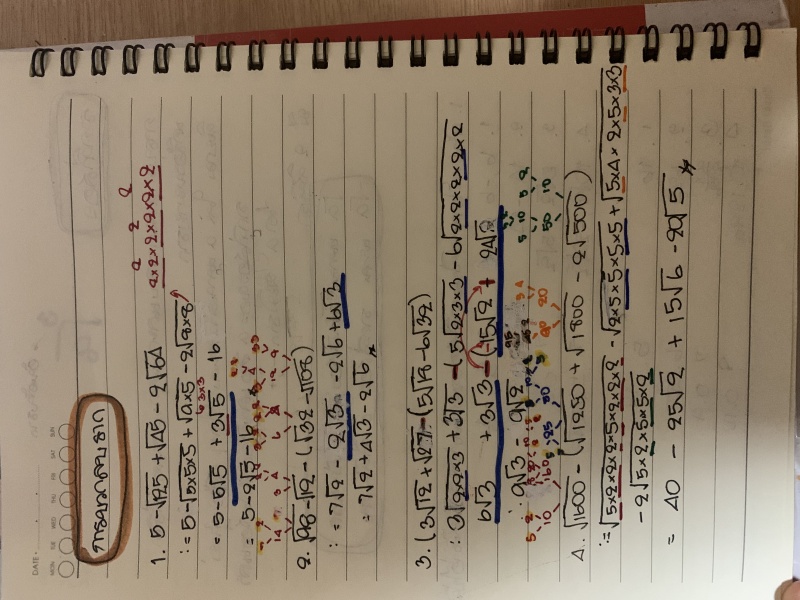 DATE
MON TUE WED THU FRI SAT SUN
การลบหาคอบ ราก
2 2 2
2×2×2×2×2×2
1. 5 - √125 + √45 - 2√64
∴ = 5 - √5×5×5 + √9×5 - 2√8×8
3×3
= 5 - 5√5 + 3√5 - 16
= 5 - 2√5 - 16
2. √98 - √12 - (√32 - √108)
∴ = 7√2 - 2√3 - 2√6 + 6√3
= 7√2 + 4√3 - 2√6
3. (3√12 + √27 - (5√18 - 6√32)
∴ 3√2×2×3 + 3√3 - (5√2×3×3 - 6√2×2×2×2×2
6√3 + 3√3 - (-15√2 + 24√2
∴ 9√3 - 9√2
4. √1600 - (√1250 + √1800 - 2√500)
∴ = √5×2×2×2×5×2×2×2 - √2×5×5×5×5 + √5×4×2×5×3×3
- 2√5×2×5×5×2
= 40 - 25√2 + 15√6 - 20√5